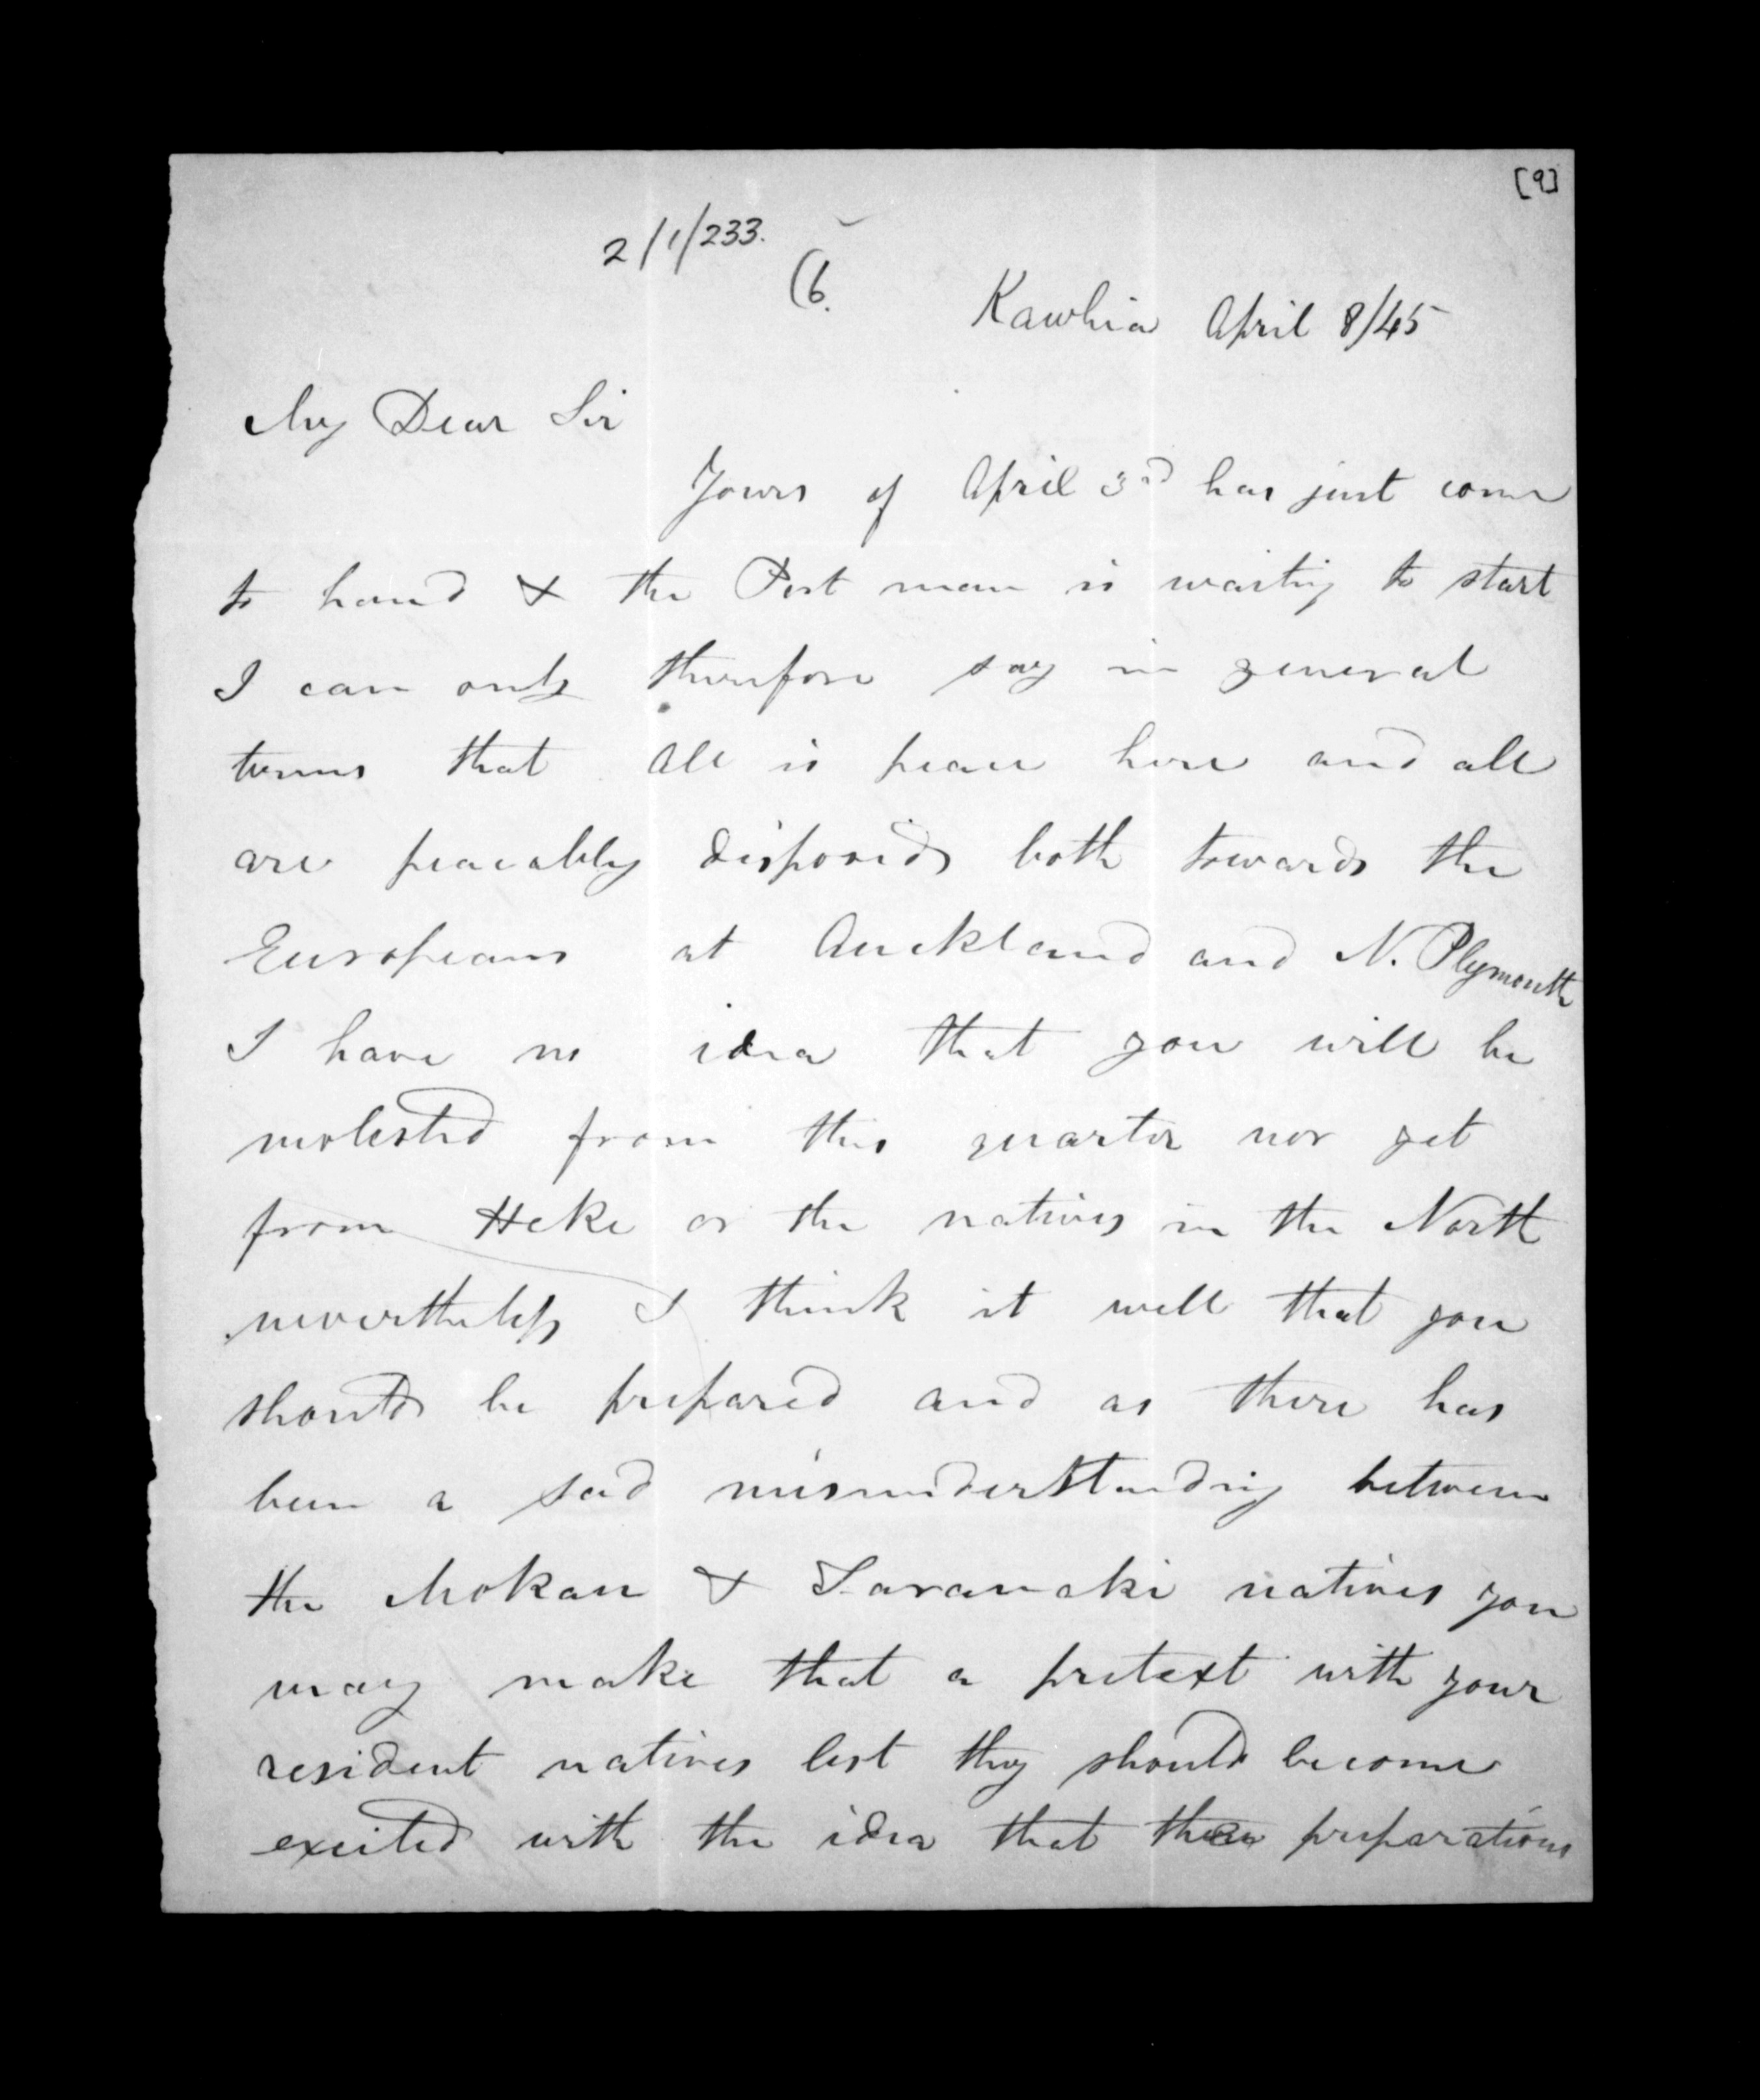 [9]
2/1/233.
(6.
Kawhia April 8/45
My Dear Sir
Yours of April 3rd has just come
to hand & the Post man is waiting to start
I can only therefore say in general
terms that all is peace here and all
are peacably disposed both towards the
Europeans at Auckland and N. Plymouth
I have no idea that you will be
molested from this quarter nor yet
from Heke or the natives in the North
nevertheless I think it well that you
should be prepared and as there has
been a sad misunderstanding between
the Mokau & Taranaki natives you
may make that a pretext with your
resident natives lest they should become
excited with the idea that these preparations